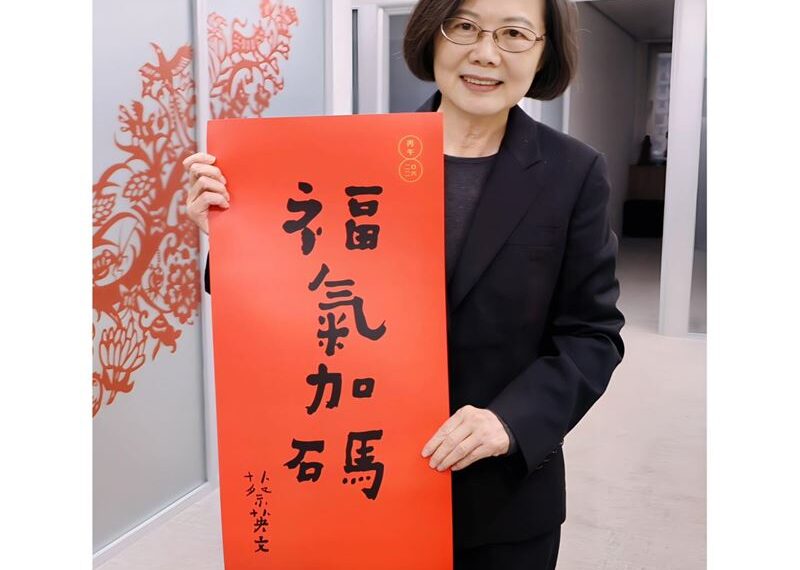 丙午
二〇二六
福氣加碼
蔡英文